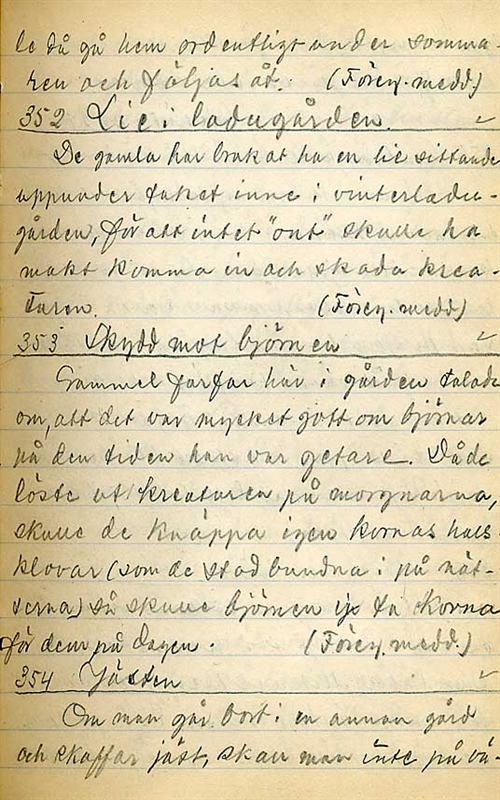 le då gå hem ordentligt under somma-
ren och följas åt. (Förey. medd.)
352 Lie i ladugården.
De gamla har brukat ha en lie sittande
uppunder taket inne i vinterladu-
gården, för att intet "ont" skulle ha
makt komma in och skada krea-
turen. (Förey. medd.)
353 Skydd mot björnen
Gammel farfar här i gården talade
om, att det var mycket gott om björnar
på den tiden han var getare. Då de
löste ut kreaturen på morgnarna,
skulle de knäppa igen kornas hals-
klovar (som de stod bundna i på nät-
terna) så skulle björnen ej ta korna
för dem på dagen. (Förey. medd.)
354 Jästen
Om man går bort i en annan gård
och skaffar jäst, skall man inte på vä-